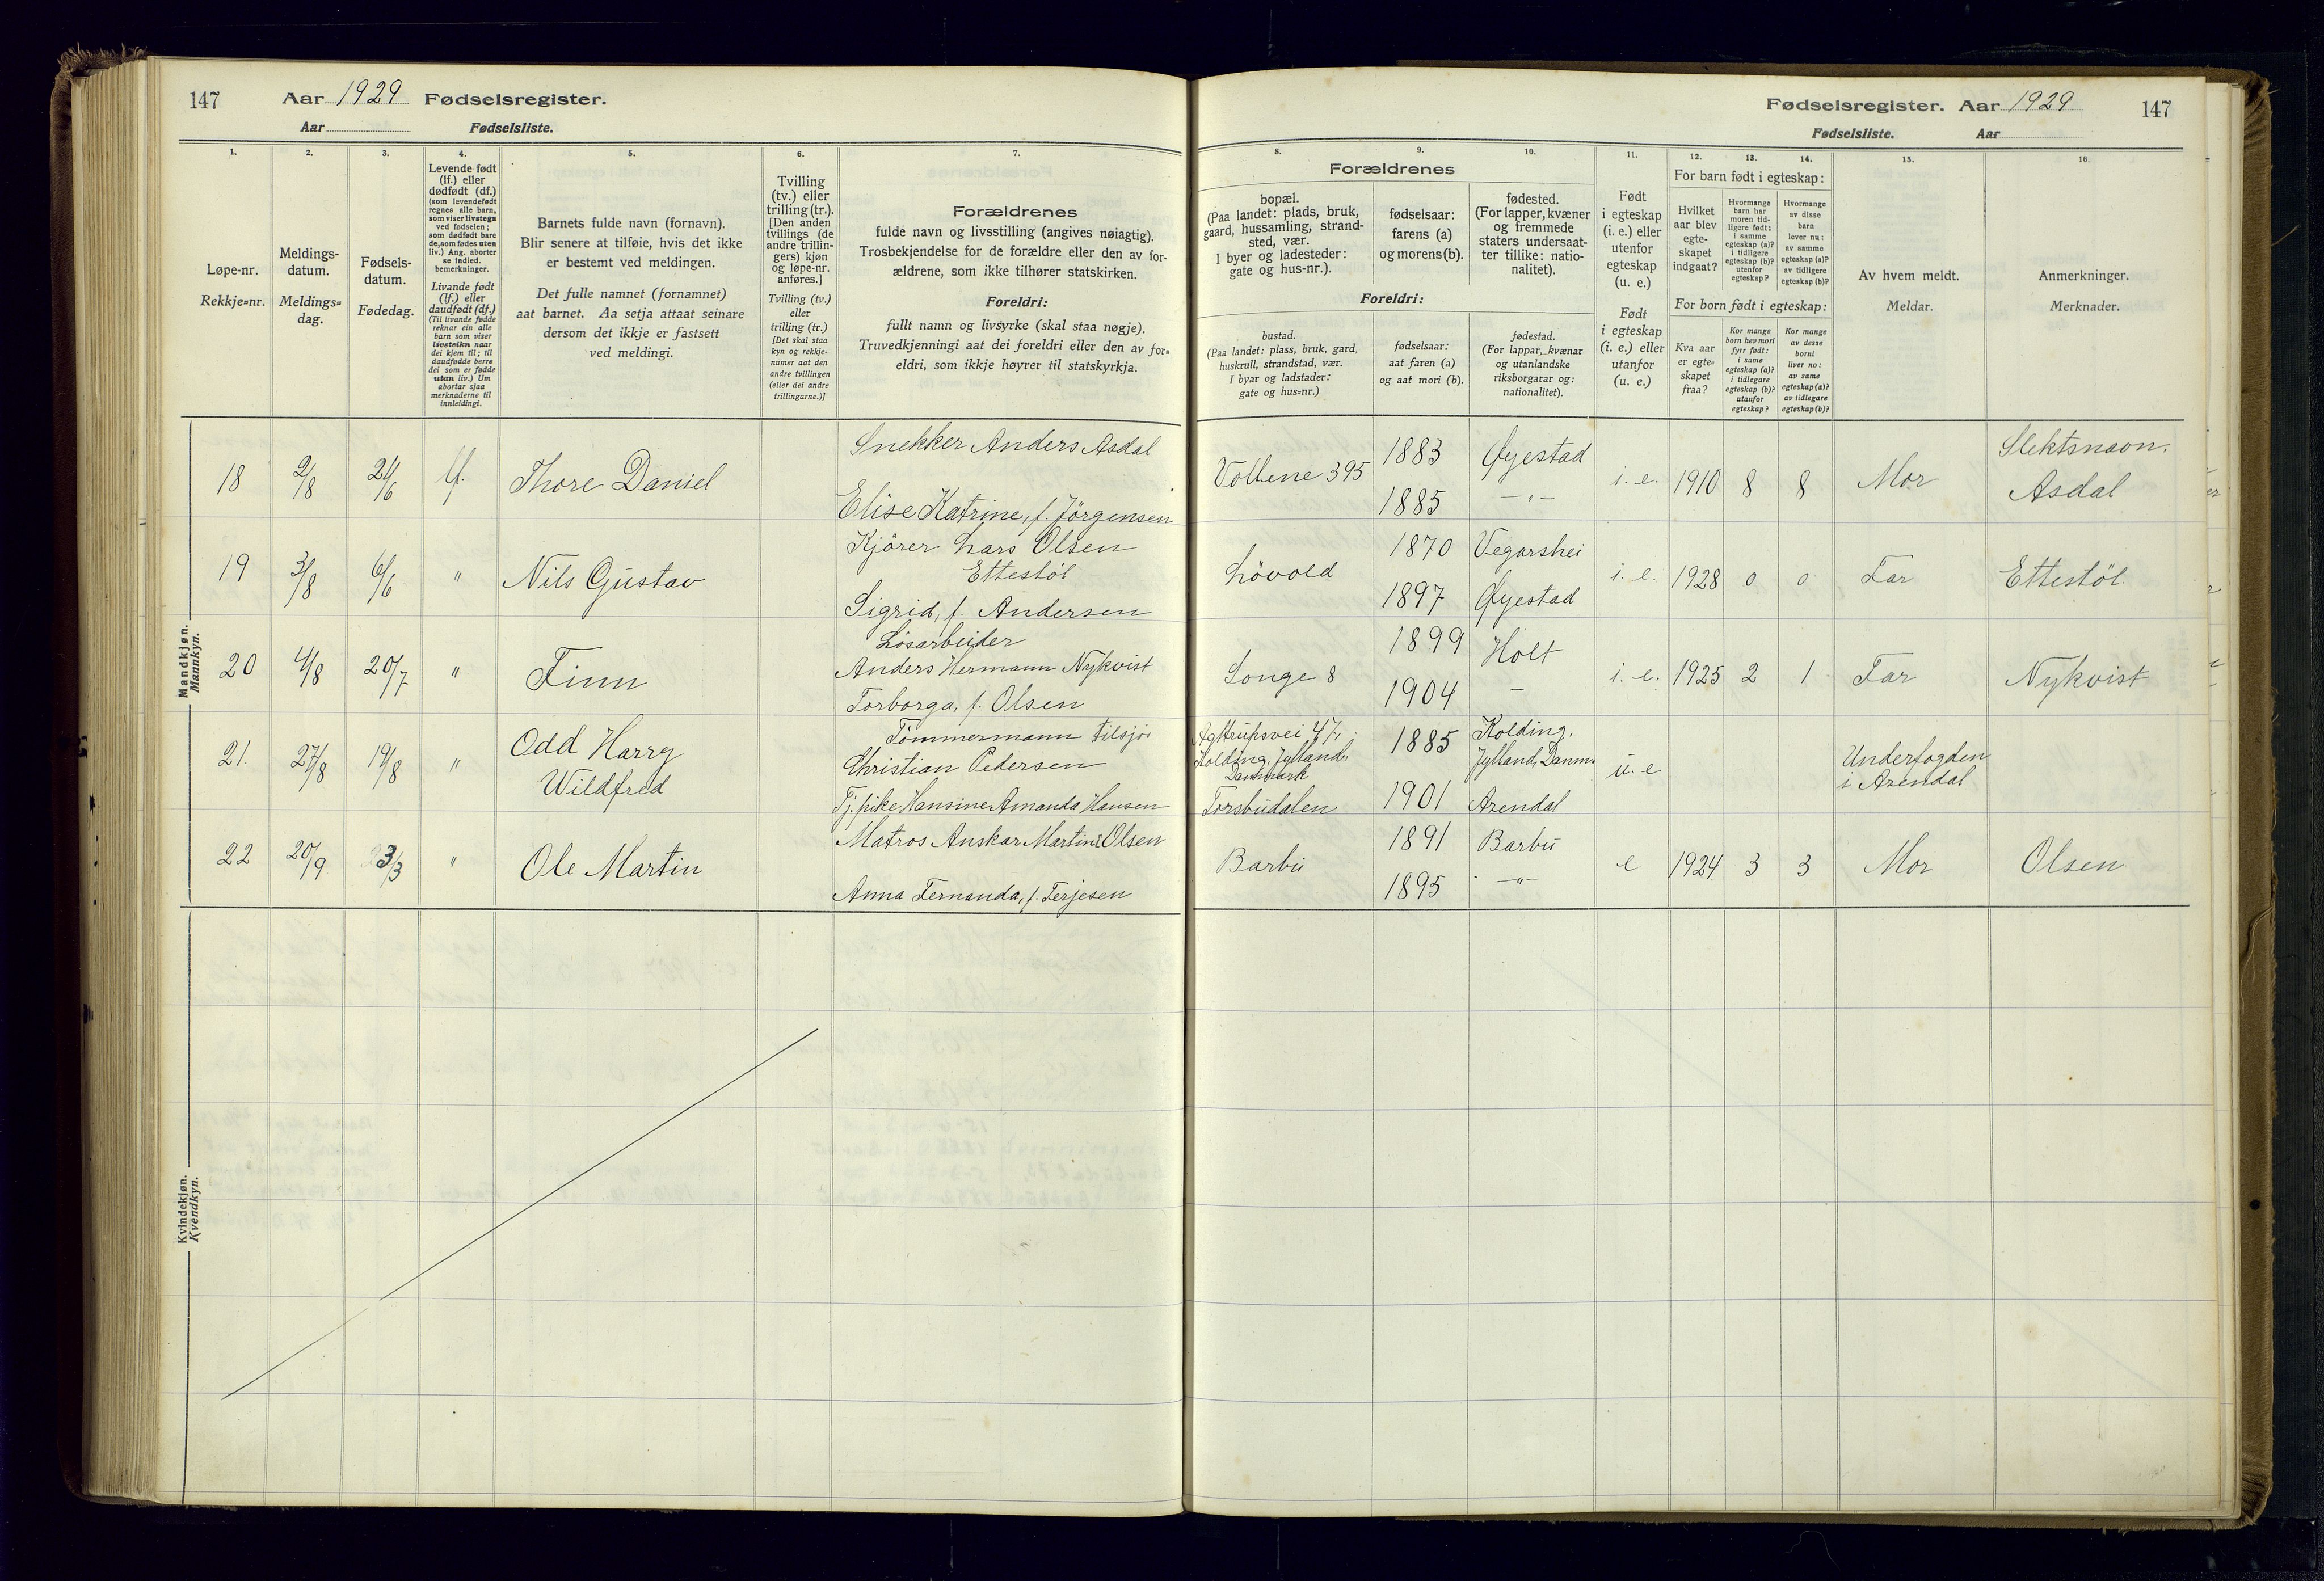 147 Aar 1929 Fødselsregister.
Aar Fødselsliste.
Fødselsregister. Aar 1929 147
Fødselsliste. Aar
1. 2. 3. 4. 5. 6. 7.
Løpe-nr.
Rekkje=nr.
Meldings-
datum.
Meldings=
dag.
Fødsels-
datum.
Fødedag.
Levende født
(lf.) eller
dødfødt (df.)
(som levendefødt
regnes alle barn,
som viser livstegn
ved fødselen;
som dødfødt bare
de, som fødes uten
liv.) Ang. aborter
se indled.
bemerkninger.
Livande født
(lf.) eller
daudfødt (df.)
(Til livande fødde
reknar ein alle
barn som viser
livsteikn naar
dei kjem til; til
daudfødde berre
dei som er fødde
utan liv.) Um
abortar sjaa
merknaderne til
innleidingi.
Barnets fulde navn (fornavn).
Blir senere at tilføie, hvis det ikke
er bestemt ved meldingen.
Det fulle namnet (fornamnet)
aat barnet. Aa setja attaat seinare
dersom det ikkje er fastsett
ved meldingi.
Tvilling
(tv.) eller
trilling (tr.).
[Den anden
tvillings (de
andre trillin-
gers) kjøn
og løpe-nr.
anføres.]
Tvilling (tv.)
eller
trilling (tr.)
[Det skal staa
kyn og rekkje-
numer aat den
andre tvillingen
(eller dei andre
trillingarne.)]
Forældrenes
fulde navn og livsstilling (angives nøiagtig).
Trosbekjendelse for de forældre eller den av for-
ældrene, som ikke tilhører statskirken.
Foreldri:
fullt namn og livsyrke (skal staa nøgje).
Truvedkjenningi aat dei foreldri eller den av for=
eldri, som ikkje høyrer til statskyrkja.
8. 9. 10. 11. 12. 13. 14. 15. 16.
Forældrenes
bopæl.
(Paa landet: plads, bruk,
gaard, hussamling, strand-
sted, vær.
I byer og ladesteder:
gate og hus-nr.).
fødselsaar:
farens (a)
og morens (b).
fødested.
(For lapper, kvæner
og fremmede
staters undersaat-
ter tillike: natio-
nalitet).
Foreldri:
bustad.
(Paa landet: plass, bruk, gard,
huskrull, strandstad, vær.
I byar og ladstader:
gate og hus=nr.)
fødselsaar:
aat faren (a)
og aat mori (b).
fødestad.
(For lappar, kvænar
og utanlandske
riksborgarar og:
nationalitet).
Født
i egteskap
(i. e.) eller
utenfor
egteskap
(u. e.)
Født
i egteskap
(i. e.) eller
utanfor
(u. e.)
For barn født i egteskap:
Hvilket
aar blev
egte-
skapet
indgaat?
Hvormange
barn har
moren tid-
ligere født:
i samme
egteskap (a)?
i tidligere
egteskap (b)?
utenfor
egteskap?
Hvormange
av disse
barn
lever nu:
av samme
egteskap (a)?
av tidligere
egteskap (b)?
For born født i egteskap:
Kva aar
er egte=
skapet
fraa?
Kor mange
born hev mori
fyrr født:
i same
egteskap (a)?
i tidlegare
egteskap (b)?
utanfor
egteskap?
Kor mange
av desse
borni
liver no:
av same
egteskap (a)?
av tidlegare
egteskap (b)?
Av hvem meldt.
Meldar.
Anmerkninger.
Merknader.
Mandkjøn.
Mannkyn.
18 2/8 24/6 lf. Thore Daniel
Snekker Anders Asdal
Elise Katrine, f. Jörgensen
Vollene 395 1883 Øyestad
1885 —"—
i. e. 1910 8 8 Mor
Slektsnavn.
Asdal
19 3/8 6/6 " Nils Gustav
Kjörer Lars Olsen
Ettestöl
Sigrid, f. Andersen
Lövold 1870 Vegarshei
1897 Øyestad
i. e. 1928 0 0 Far Ettestöl
20 4/8 20/7 " Finn
Lösarbeider
Anders Hermann Nykvist
Torborga, f. Olsen
Songe 8 1899 Holt
1904 —
i. e. 1925 2 1 Far Nykvist
21. 27/8 19/8 " Odd Harry
Wildfred
Tömmermann tilsjös
Christian Pedersen
Tj. pike Hansine Amanda Hansen
Agttrupsvei 47,
Kolding, Jylland,
Danmark
1885 Kolding,
Jylland, Danm.
Torsbudalen 1901 Arendal
u. e
Underfogden
i Arendal
22 20/9 23/3 " Ole Martin
Matros Anskar Martin Olsen
Anna Fernanda, f. Terjesen
Barbu 1891 Barbu
1895 —"—
e 1924 3 3 Mor Olsen
Kvindekjøn.
Kvendkyn.